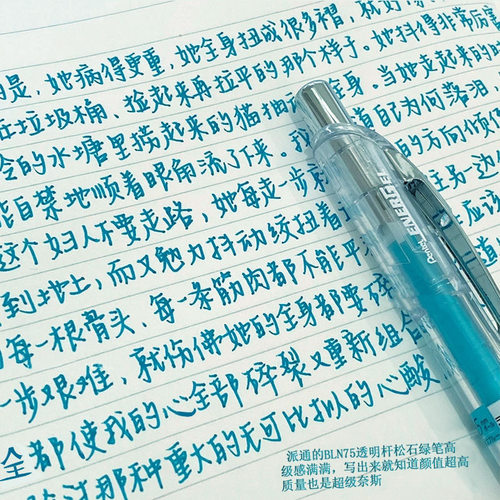 的是,她病得更重,她全身扭成很多褶,就好
在垃圾桶、捡起来再拉平的那个样子。她抖得非常厉害
冷的水塘里捞起来的猫抽 全身。当她走起来的
能自禁地顺着眼角流了下来。我 道自己为何落泪,
这个妇人不要走路,她每走一步 的方向倾
到地上,而又勉力抖动绞扭着 主另一边
的每一根骨头、每一条筋肉都不能平 应该
一步艰难,就仿佛她的全身都要碎 道
全都使我的心全部碎裂又重新组合
过那种重大的无可比拟的心酸
Pentel ENERGEL
派通的BLN75透明杆松石绿笔高
级感满满,写出来就知道颜值超高
质量也是超级奈斯